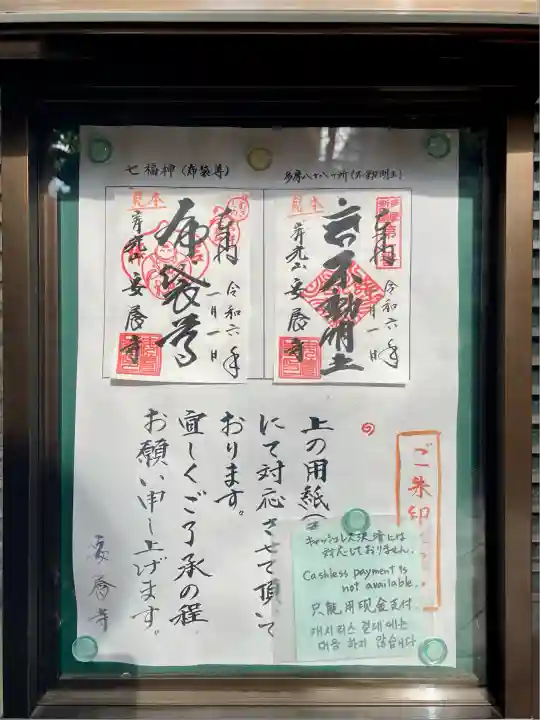 七福神(布袋尊)
多摩八十八ヶ所(不動明王)
見本
奉拝
令和六年
一月一日
布袋尊
安養寺
見本
奉拝
令和六年
一月一日
不動明王
安養寺
ご朱印
上の用紙(
にて対応させて頂いて
おります。
宜しくご了承の程
お願い申し上げます。
安養寺
キャッシュレス決済には
対応しておりません。
Cashless payment is
not available.
只能用现金支付
캐시리스 결제에는
대응 하지 않습니다